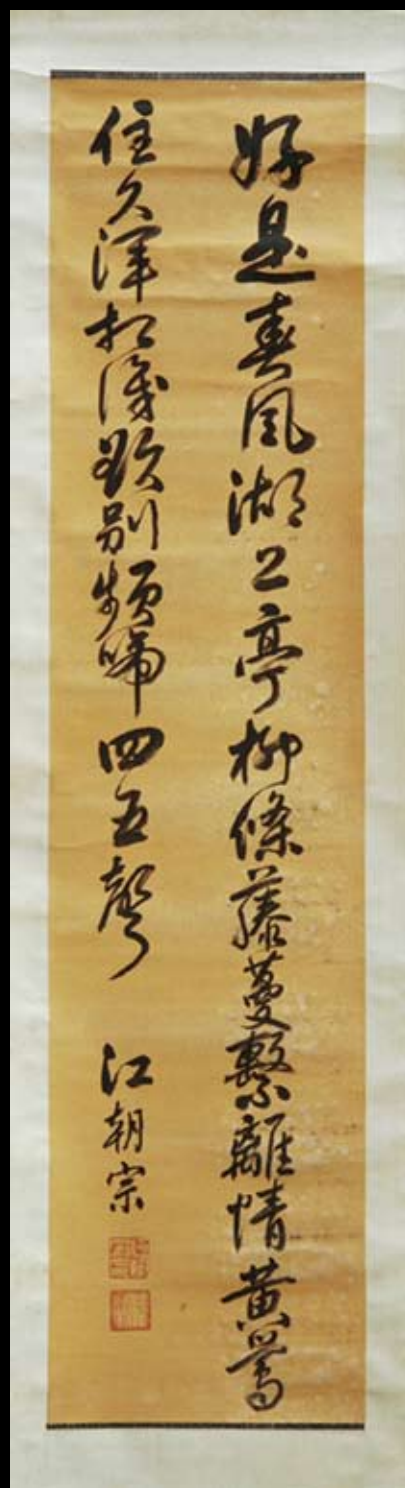 好是春風湖上亭柳條藤蔓繫離情黃鶯
住久渾相識欲別頻啼四五聲
江朝宗